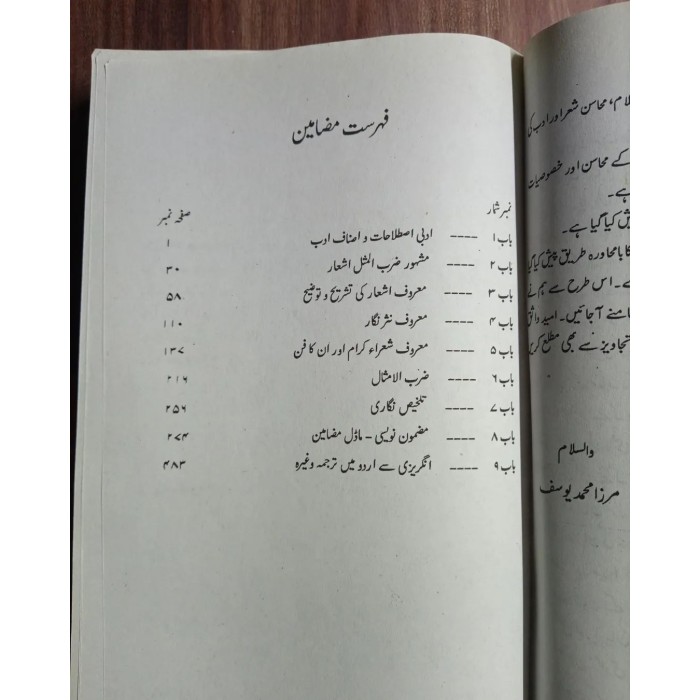 فہرست مضامین
نمبر شمار صفحہ نمبر
باب ۱ ---- ادبی اصطلاحات و اصناف ادب ۱
باب ۲ ---- مشہور ضرب المثل اشعار ۳۰
باب ۳ ---- معروف اشعار کی تشریح و توضیح ۵۸
باب ۴ ---- معروف نثر نگار ۱۱۰
باب ۵ ---- معروف شعراء کرام اور ان کا فن ۱۳۷
باب ۶ ---- ضرب الامثال ۲۱۶
باب ۷ ---- تلخیص نگاری ۲۵۶
باب ۸ ---- مضمون نویسی - ماڈل مضامین ۲۷۴
باب ۹ ---- انگریزی سے اردو میں ترجمہ وغیرہ ۴۸۳
لام، محاسن شعر اور ادب کی
کے محاسن اور خصوصیات
ہے۔
یش کیا گیا ہے۔
کا بامحاورہ طریق پیش کیا گیا
ے۔ اس طرح سے ہم نے
امنے آ جائیں۔ امید واثق
تجاویز سے بھی مطلع کریں
والسلام
مرزا محمد یوسف